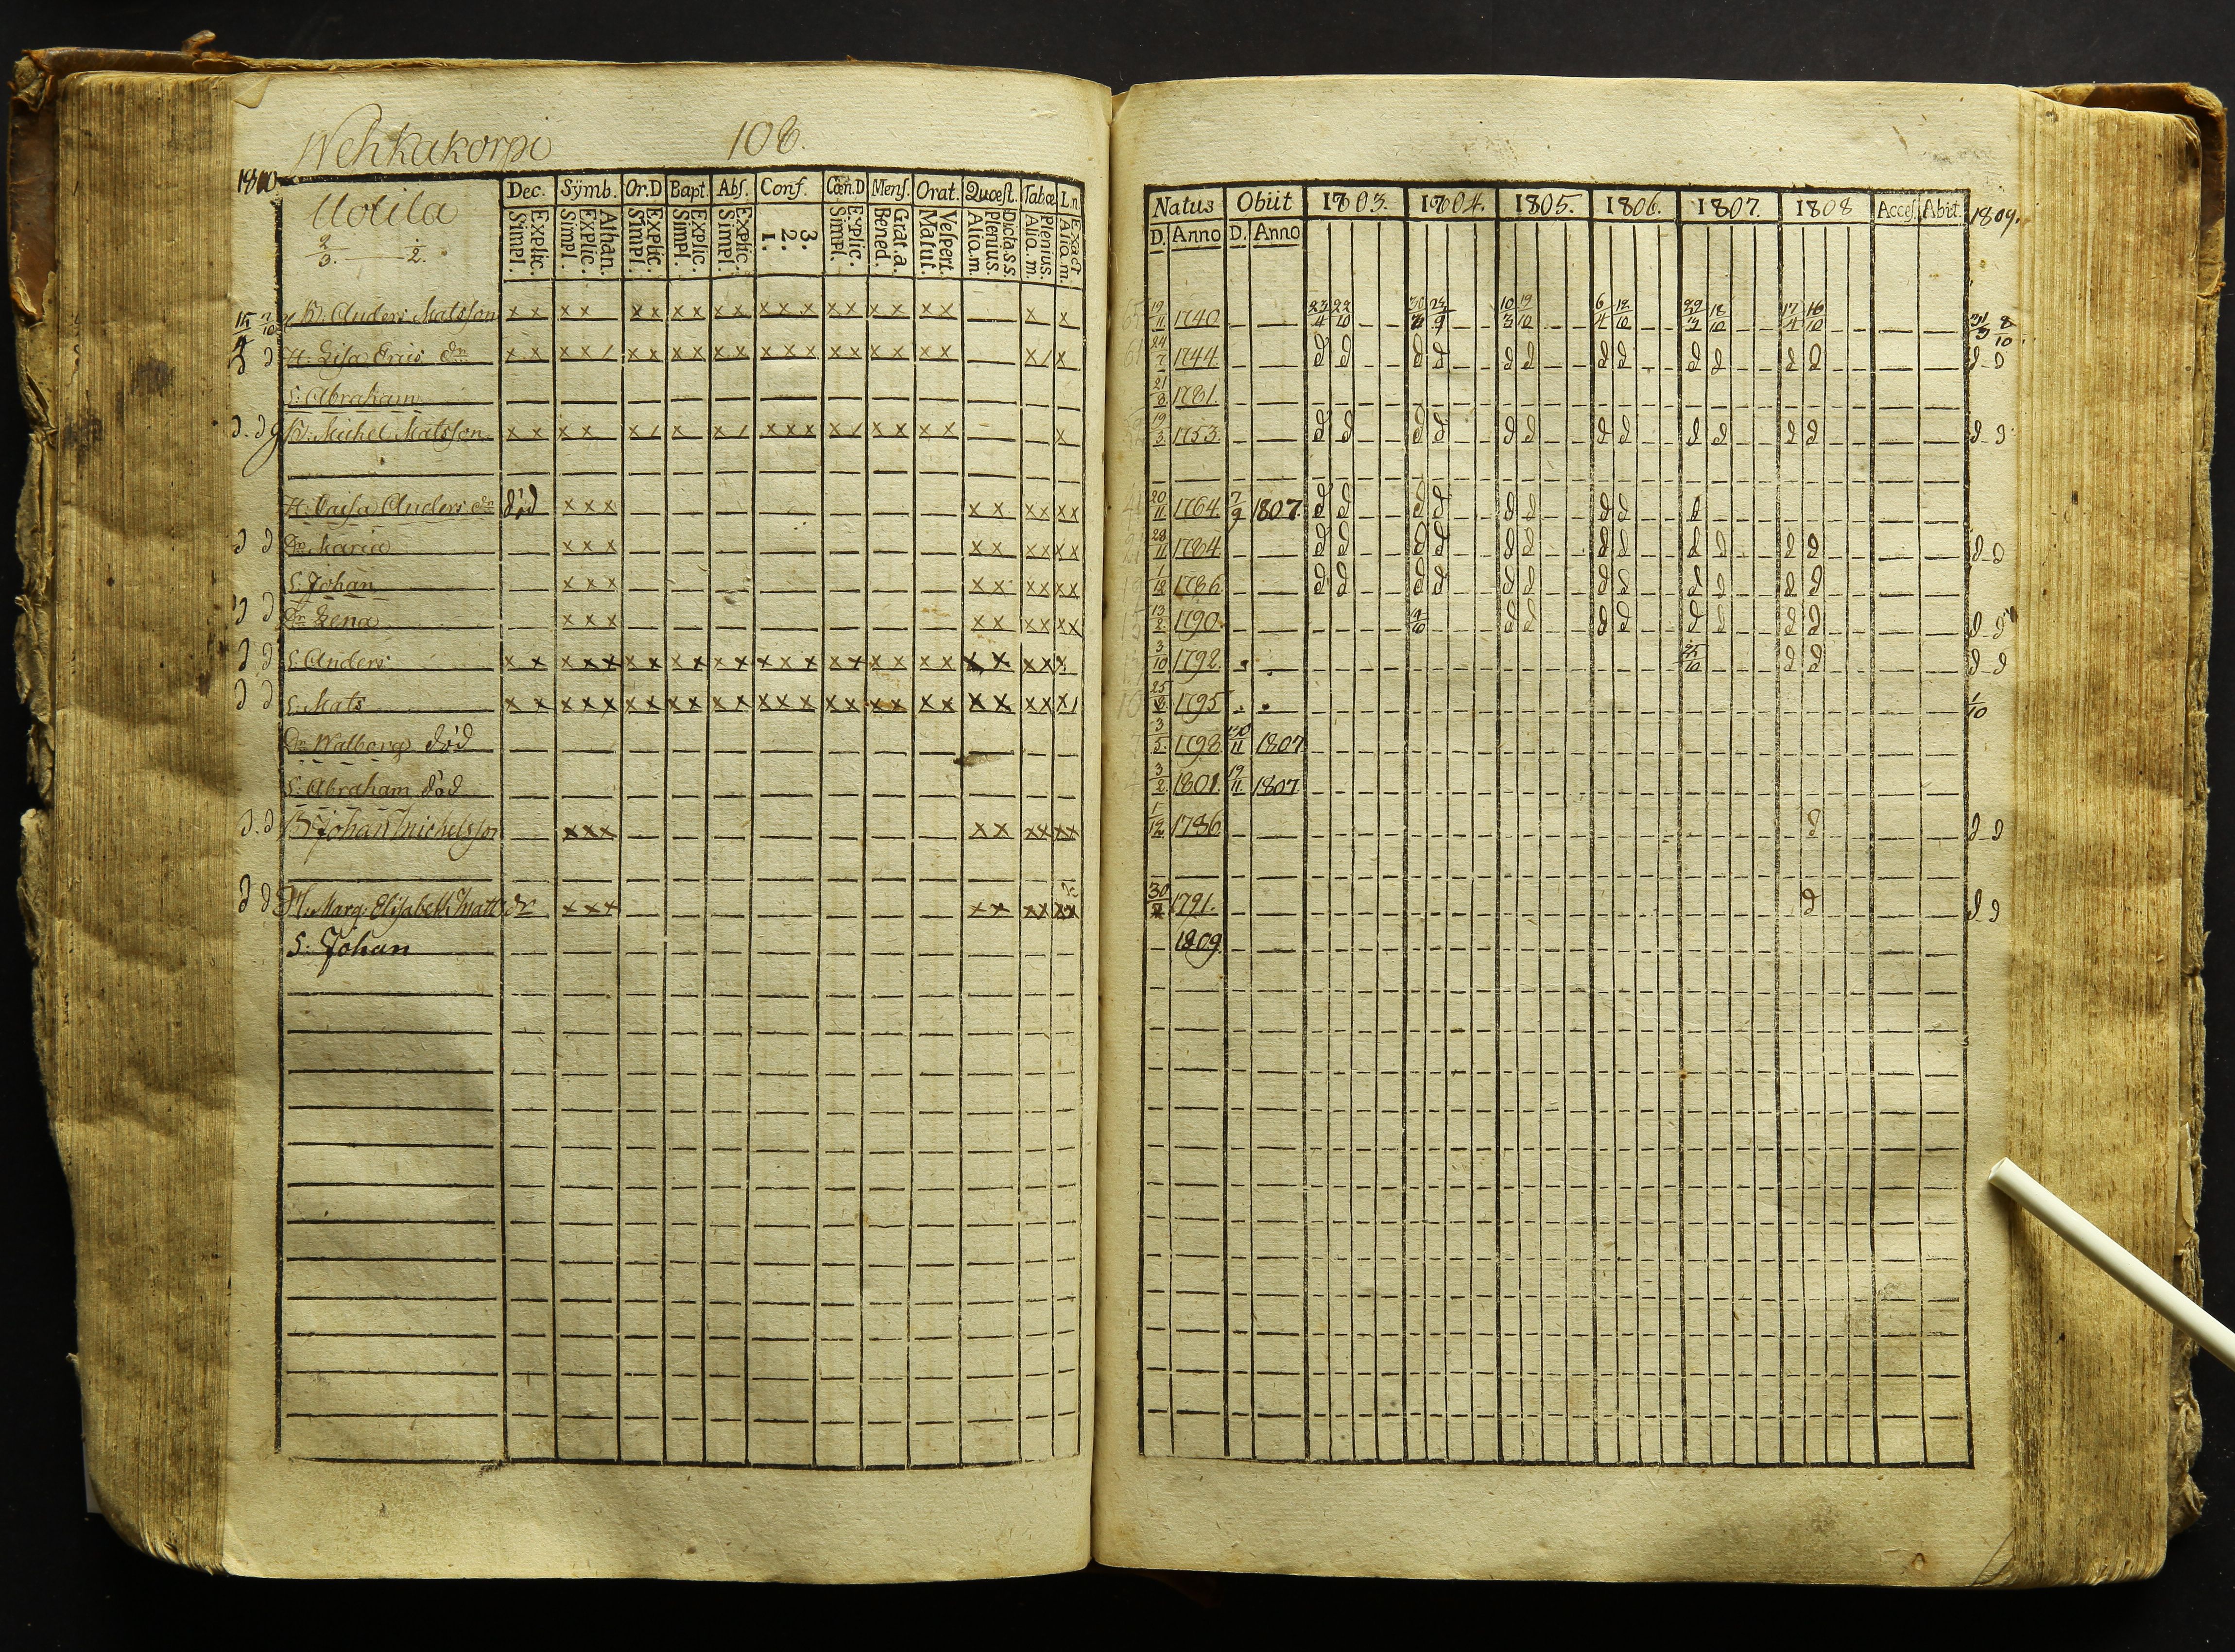 Wehkakorpi 108.
1810
Uotila
Dec. Symb. Or.D Bapt. Abs. Conf. Cœn.D Mens. Orat. Quœst. Tabœ L.n.
Explic. Simpl. Athan. Explic. Simpl. Explic. Simpl. Explic. Simpl. Explic. Simpl. 3. 2. 1. Explic. Simpl. Grat.a. Bened. Vespert. Matut. Dicta.s.s. Plenius. Aliq.m. Plenius. Aliq.m. Exact Aliq.m.
2/3. — 1/2.
15/4 7/10 B: Anders Matsson x x x x x x x x x x x x x x x x x x x x x
d d H: Lisa Erics dr x x x x / x x x x x x x x x x x x x x x x / x
S: Abraham
d. d B: Michel Matsson x x x x x / x x / x x x x / x x x x x
H: Caisa Anders dr död x x x x x x x x x
d d Dr Maria x x x x x x x x x
S: Johan x x x x x x x x x
d d Dr Lena x x x x x x x x x
d d S: Anders x x x x x x x x x x x x x x x x x x x x x x x x x
d d S: Mats x x x x x x x x x x x x x x x x x x x x x x x x x /
Dr Walborg död
S: Abraham död
d. d B Johan Michelsson x x x x x x x x x
d d H: Marg: Elisabeth Matts dr x x x x x x x x x
S: Johan
Natus Obiit 1803. 1804. 1805. 1806. 1807. 1808 Acces. Abit. 1809.
D. Anno D. Anno
19/11 1740 23/4 22/10 10/3 19/10 6/4 12/10 18/10 17/4 16/10 8/10
24/7 1744 d d d d d d d d d d d d d d
21/8 1781
19/3 1753 d d d d d d d d d d d d d d
20/11 1764 7/9 1807 d d d d d d d d d
28/11 1784 d d d d d d d d d d d d d d
1/12 1786 d d d d d d d d d d d d
13/2 1790 d d d d d d d d d d
3/10 1792 25/10 d d d d
25/8 1795 1/10
3/5 1798 30/11 1807
3/2 1801 19/11 1807
1/12 1786 d d d
30/2 1791. d d d
1809